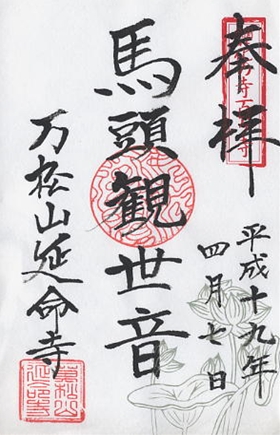 奉拝
平成十九年
四月七日
馬頭観世音
万松山延命寺